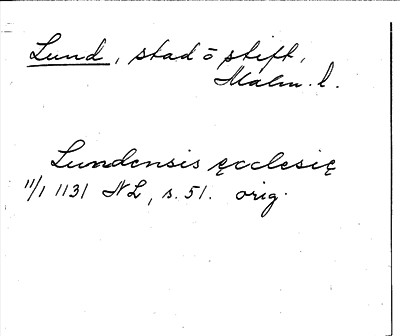 Lund, stad o stift,
Malm. l.
Lundensis ęcclesię
11/1 1131 NL, s. 51. orig.